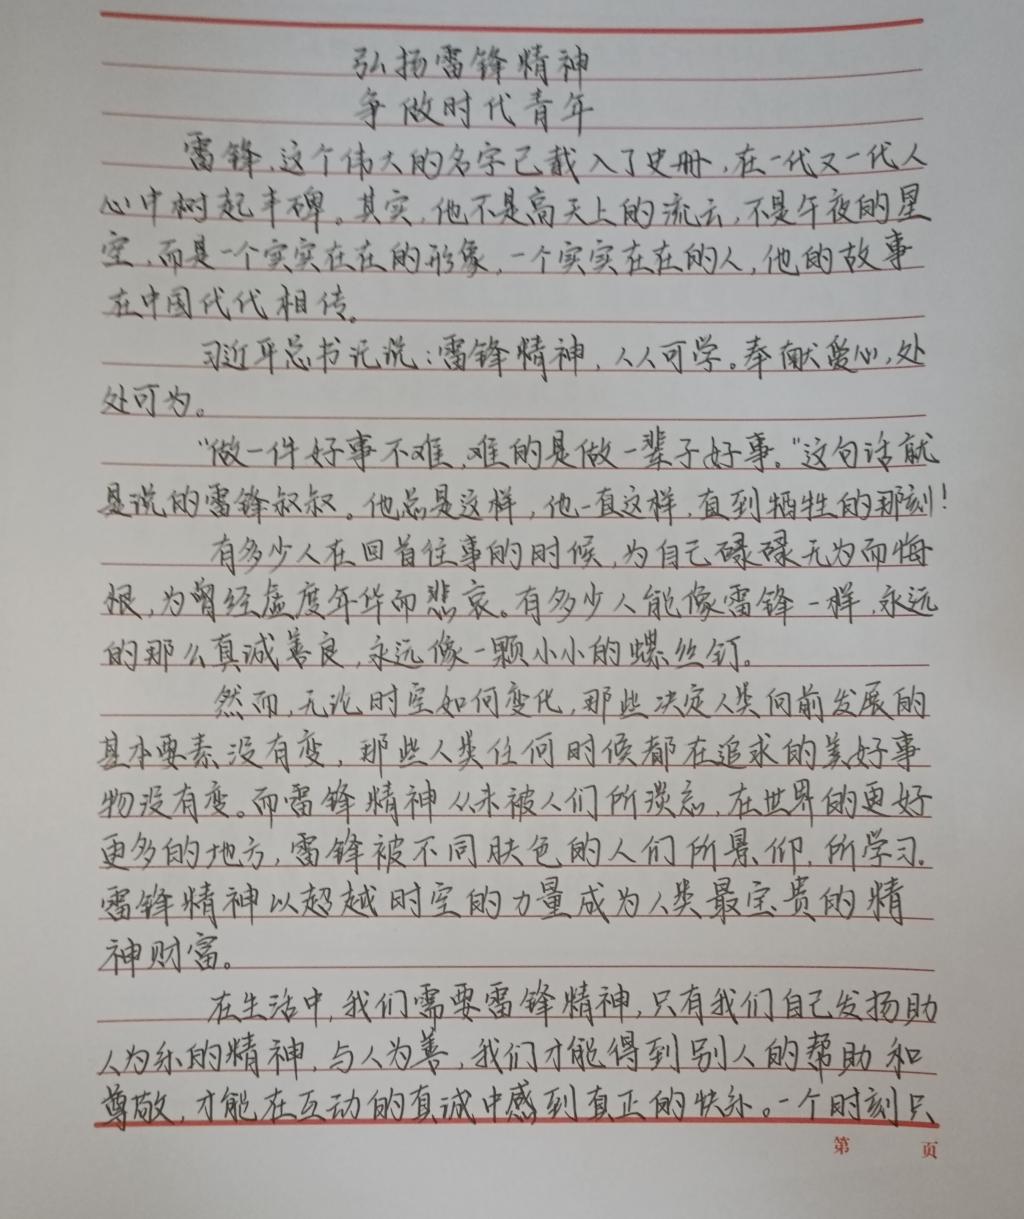 弘扬雷锋精神
争做时代青年
雷锋,这个伟大的名字已载入了史册,在一代又一代人
心中树起丰碑。其实,他不是高天上的流云,不是午夜的星
空,而是一个实实在在的形像,一个实实在在的人,他的故事
在中国代代相传。
习近平总书记说:雷锋精神,人人可学。奉献爱心,处
处可为。
“做一件好事不难,难的是做一辈子好事。”这句话就
是说的雷锋叔叔。他总是这样,他一直这样,直到牺牲的那刻!
有多少人在回首往事的时候,为自己碌碌无为而悔
恨,为曾经虚度年华而悲哀。有多少人能像雷锋一样,永远
的那么真诚善良,永远像一颗小小的螺丝钉。
然而,无论时空如何变化,那些决定人类向前发展的
基本要素没有变,那些人类任何时候都在追求的美好事
物没有变。而雷锋精神从未被人们所淡忘,在世界的更好
更多的地方,雷锋被不同肤色的人们所景仰,所学习.
雷锋精神以超越时空的力量成为人类最宝贵的精
神财富。
在生活中,我们需要雷锋精神,只有我们自己发扬助
人为乐的精神,与人为善,我们才能得到别人的帮助和
尊敬,才能在互动的真诚中感到真正的快乐。一个时刻只
第 页